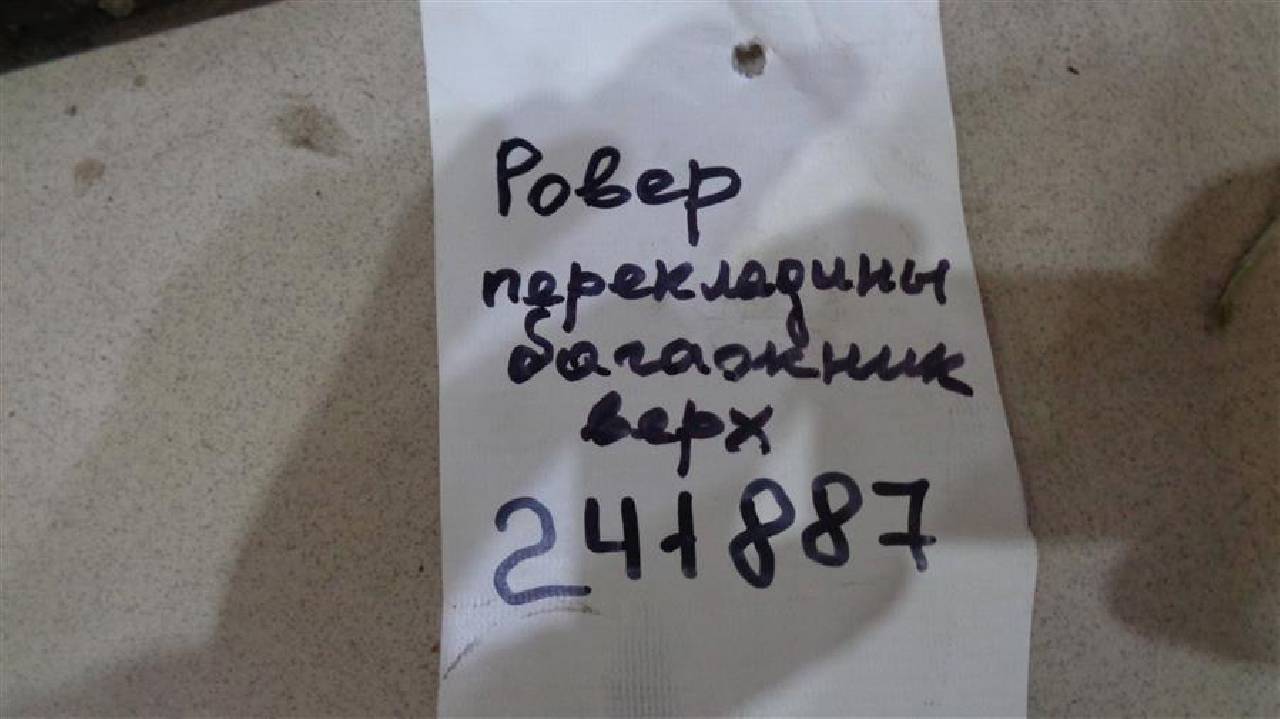 Ровер
перекладины
багажник
верх
241887